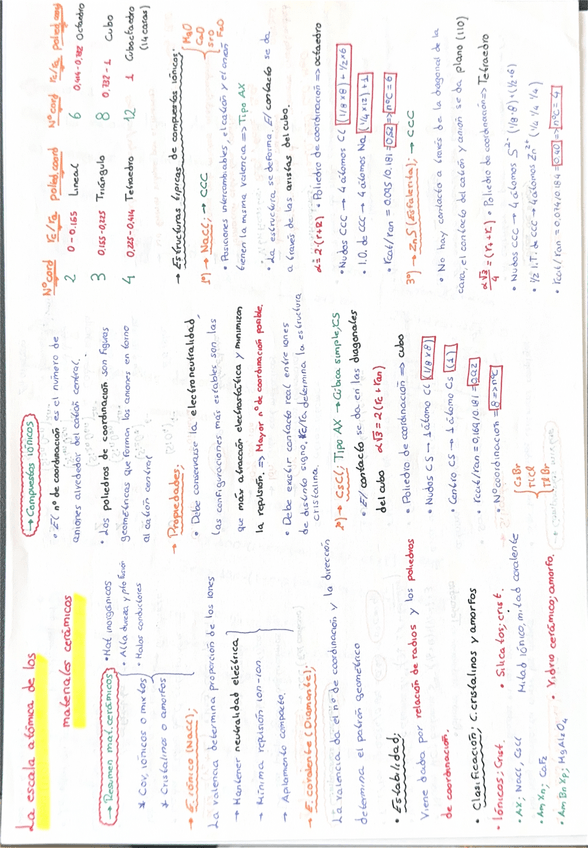 La escala atómica de los
materiales cerámicos
→ Resumen mat. cerámicos
• Mat inorgánicos
• Alta dureza y pto fusión
• Malos conductores
* Cov, iónicos o mixtos
* Cristalinos o amorfos
→ E. iónico (NaCl);
La valencia determina proporción de los iones
→ Mantener neutralidad eléctrica
→ Mínima repulsión ion-ion
→ Apilamiento compacto
→ E. covalente (Diamante);
La valencia da el nº de coordinación y la dirección
determina el patrón geométrico
• Estabilidad;
Viene dada por relación de radios y los poliedros
de coordinación.
• Clasificación; C. cristalinos y amorfos
• Iónicos; Crist.
• AX; NaCl, CsCl
• AmXn; CaF₂
• AmBnXp; MgAl₂O₄
• Silicatos; crist.
Mitad iónico, mitad covalente
• Vidrio cerámico; amorfo.
→ Compuestos iónicos
• El nº de coordinación es el número de
aniones alrededor del catión central.
• Los poliedros de coordinación son figuras
geométricas que forman los aniones en torno
al catión central
→ Propiedades;
• Debe conservarse la electroneutralidad,
las configuraciones más estables son las
que más atracción electrostática y minimizan
la repulsión. => Mayor nº de coordinación posible.
• Debe existir contacto real entre iones
de distinto signo, rc/ra determina la estructura
cristalina.
2º) → CsCl; Tipo AX → Cúbica simple, CS
• El contacto se da en las diagonales
del cubo a√3 = 2(rc + ran)
• Poliedro de coordinación => cubo
• Nudos CS → 1 átomo Cl (1/8 x 8)
Centro CS → 1 átomo Cs (1)
• rcat/ran = 0,169/0.181 = 0,92
• Nº coordinación = 8 => nºC
CsBr
TlCl
TlBr
Nºcord rc/ra polied. coord
2 0-0.155 Lineal
3 0,155-0,225 Triángulo
4 0,225-0,414 Tetraedro
Nºcord rc/ra polied coord
6 0,414-0,732 Octaedro
8 0,732-1 Cubo
12 1 Cuboctaedro
(14 caras)
→ Estructuras típicas de compuestos iónicos:
1º) → NaCl; → CCC
MgO
CaO
SrO
FeO
• Posiciones intercambiables, el catión y el anión
tienen la misma valencia => Tipo AX
• La estructura se deforma. El contacto se da
a través de las aristas del cubo.
a = 2·(r+R) • Poliedro de coordinación => octaedro
• Nudos CCC → 4 átomos Cl (1/8 x 8) + 1/2 x 6
• I.O. de CCC → 4 átomos Na (1/4 x 12) + 1
• rcat/ran = 0.095/0.181 = 0,52 => nºC = 6
3º) → ZnS (Esfalerita); → CCC
• No hay contacto a través de la diagonal de la
cara, el contacto del catión y anión se da plano (110)
a√3/4 = (rc + R) • Poliedro de coordinación => Tetraedro
• Nudos CCC → 4 átomos S²⁻ (1/8·8) + (1/2·6)
• 1/2 I.T. de CCC → 4 átomos Zn²⁺ (1/4 1/4 1/4)
• rcat/ran = 0.074/0.184 = 0.40 => nºC = 4